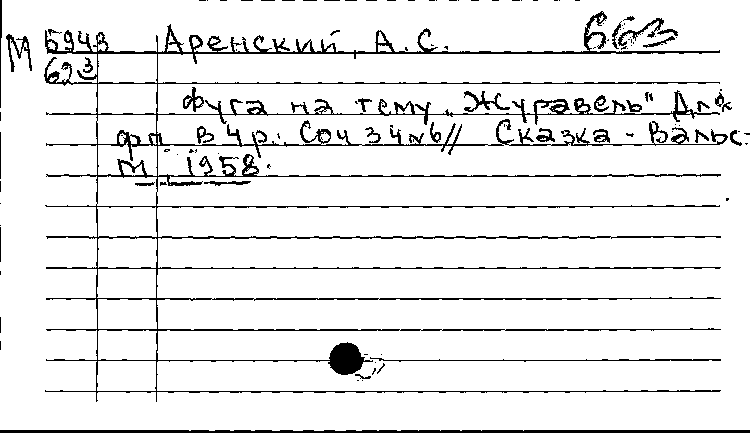 М 594з Аренский, А.С. 663
623
Фуга на тему „Журавель" Для
фп. в 4 р.. Соч 34 №6// Сказка - Вальс.-
М., 1958.